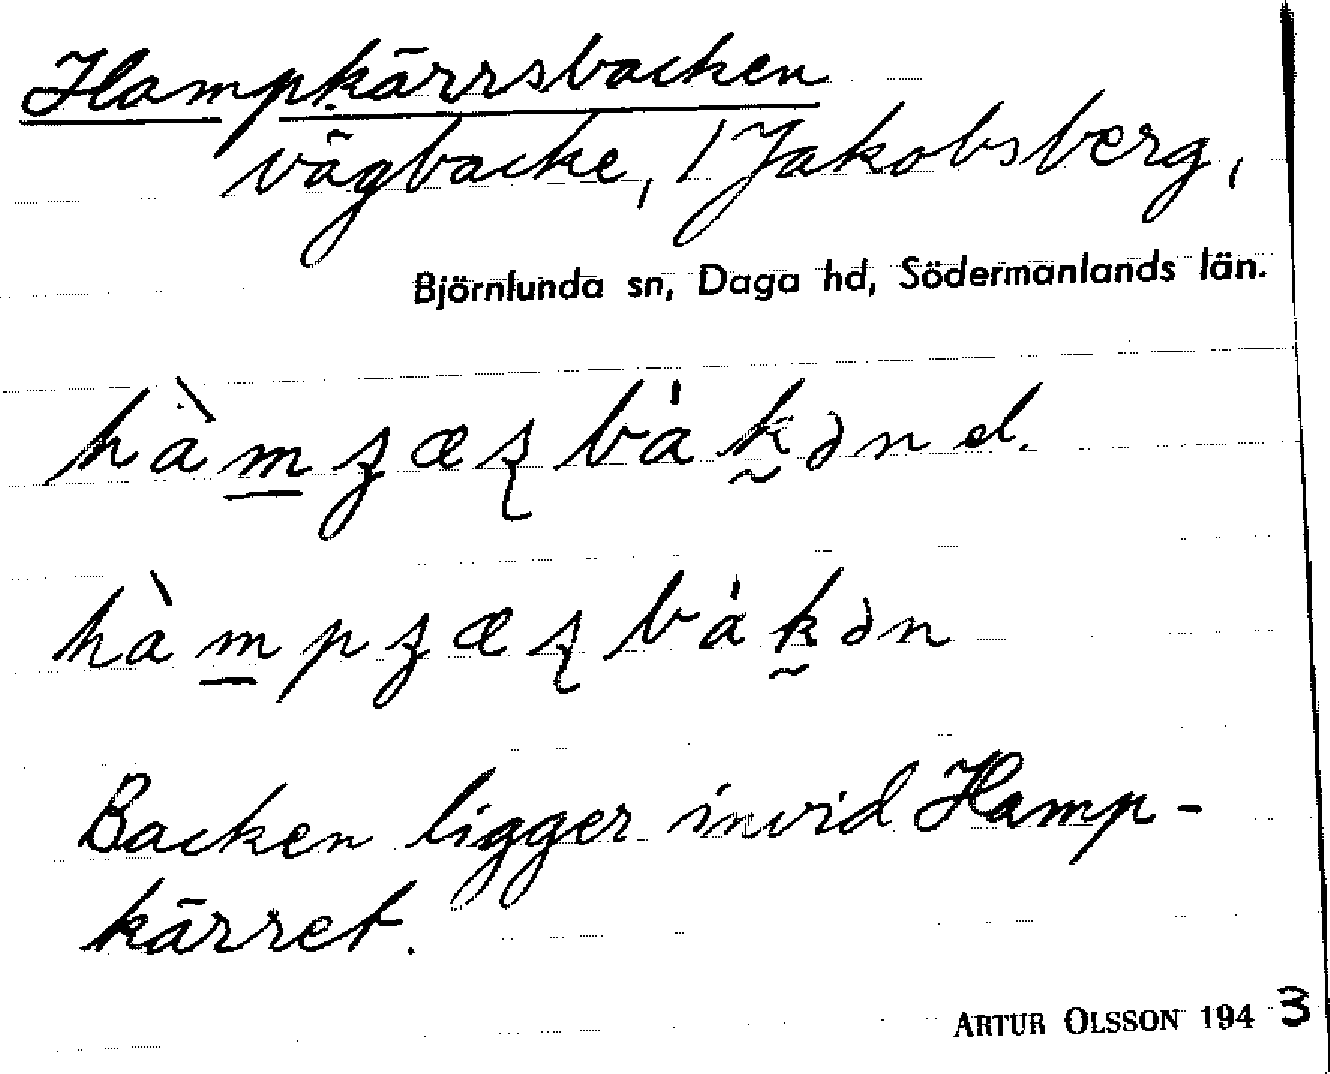 Hampkärrsbacken
vägbacke, 1 Jakobsberg,
Björnlunda sn, Daga hd, Södermanlands län.
hàm̲ʒæʂbákən el.
hàm̲pʒæʂbákən
Backen ligger invid Hamp-
kärret.
ARTUR OLSSON 1943